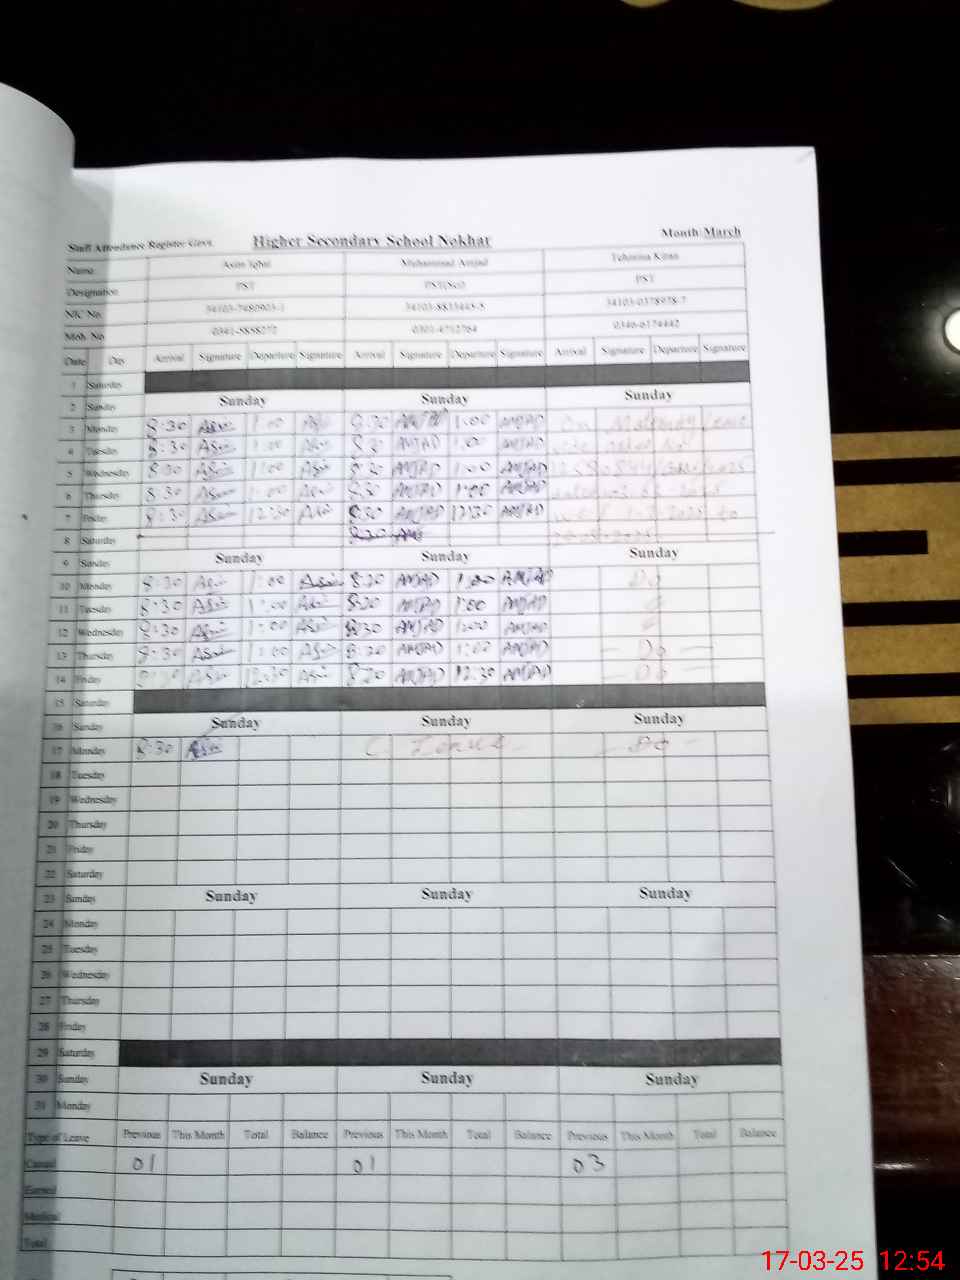 Staff Attendance Register Govt. Higher Secondary School Nokhar Month March
Name Asim Iqbal Muhammad Amjad Tehmina Kiran
Designation PST PST(Sci) PST
NIC No
Mob. No 0346-6174442
Date Day Arrival Signature Departure Signature Arrival Signature Departure Signature Arrival Signature Departure Signature
1 Saturday
2 Sunday Sunday Sunday Sunday
3 Monday 8:30 Asim 1:00 Asim 8:30 AMJAD 1:00 AMJAD On Maternity Leave
4 Tuesday 8:30 Asim 1:00 Asim 8:30 AMJAD 1:00 AMJAD
5 Wednesday 8:30 Asim 1:00 Asim 8:30 AMJAD 1:00 AMJAD
6 Thursday 8:30 Asim 1:00 Asim 8:30 AMJAD 1:00 AMJAD
7 Friday 8:30 Asim 12:30 Asim 8:30 AMJAD 12:30 AMJAD
8 Saturday 8:30
9 Sunday Sunday Sunday Sunday
10 Monday 8:30 Asim 1:00 Asim 8:30 AMJAD 1:00 AMJAD Do
11 Tuesday 8:30 Asim 1:00 Asim 8:30 AMJAD 1:00 AMJAD
12 Wednesday 8:30 Asim 1:00 Asim 8:30 AMJAD 1:00 AMJAD
13 Thursday 8:30 Asim 1:00 Asim 8:30 AMJAD 1:00 AMJAD Do
14 Friday 8:30 Asim 12:30 Asim 8:30 AMJAD 12:30 AMJAD Do
15 Saturday
16 Sunday Sunday Sunday Sunday
17 Monday 8:30 Asim C. Leave Do
18 Tuesday
19 Wednesday
20 Thursday
21 Friday
22 Saturday
23 Sunday Sunday Sunday Sunday
24 Monday
25 Tuesday
26 Wednesday
27 Thursday
28 Friday
29 Saturday
30 Sunday Sunday Sunday Sunday
31 Monday
Type of Leave Previous This Month Total Balance Previous This Month Total Balance Previous This Month Total Balance
Casual 01 01 03
Earned
Medical
Total
17-03-25 12:54